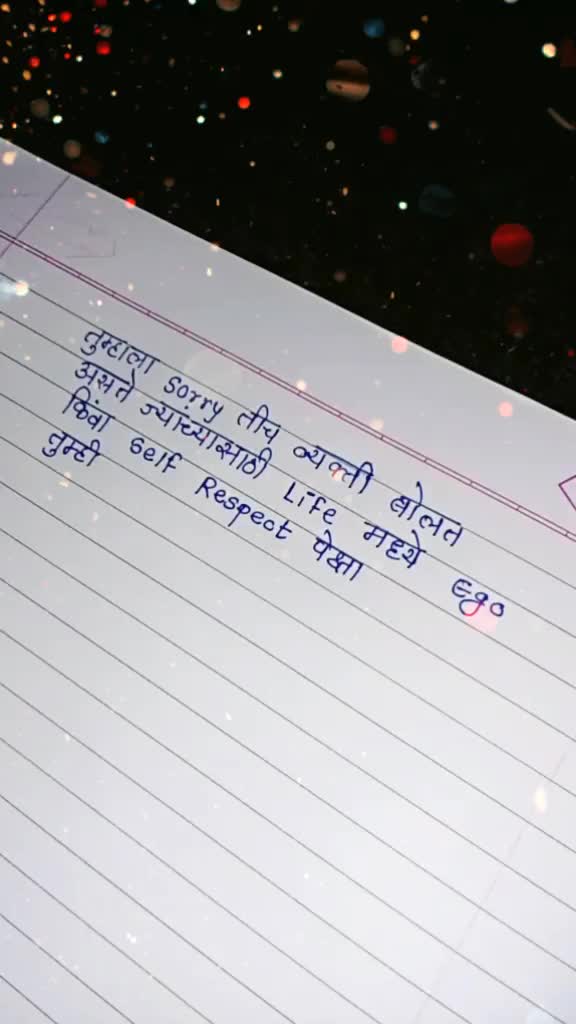 तुम्हाला sorry तीच व्यक्ती बोलत
असते ज्यांच्यासाठी Life मध्ये Ego
किंवा Self Respect पेक्षा
तुम्ही